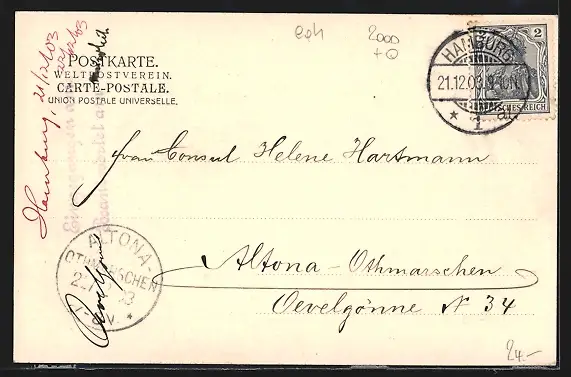 egh
2000
+Q
POSTKARTE.
WELTPOSTVEREIN.
CARTE-POSTALE.
UNION POSTALE UNIVERSELLE.
HAMBURG
21.12.03
* 1
2
REICH
Hamburg, 21/12/03
Frau Consul Helene Hartmann
Altona - Othmarschen
Oevelgönne N 34
ALTONA-
OTHMARSCHEN
24.-